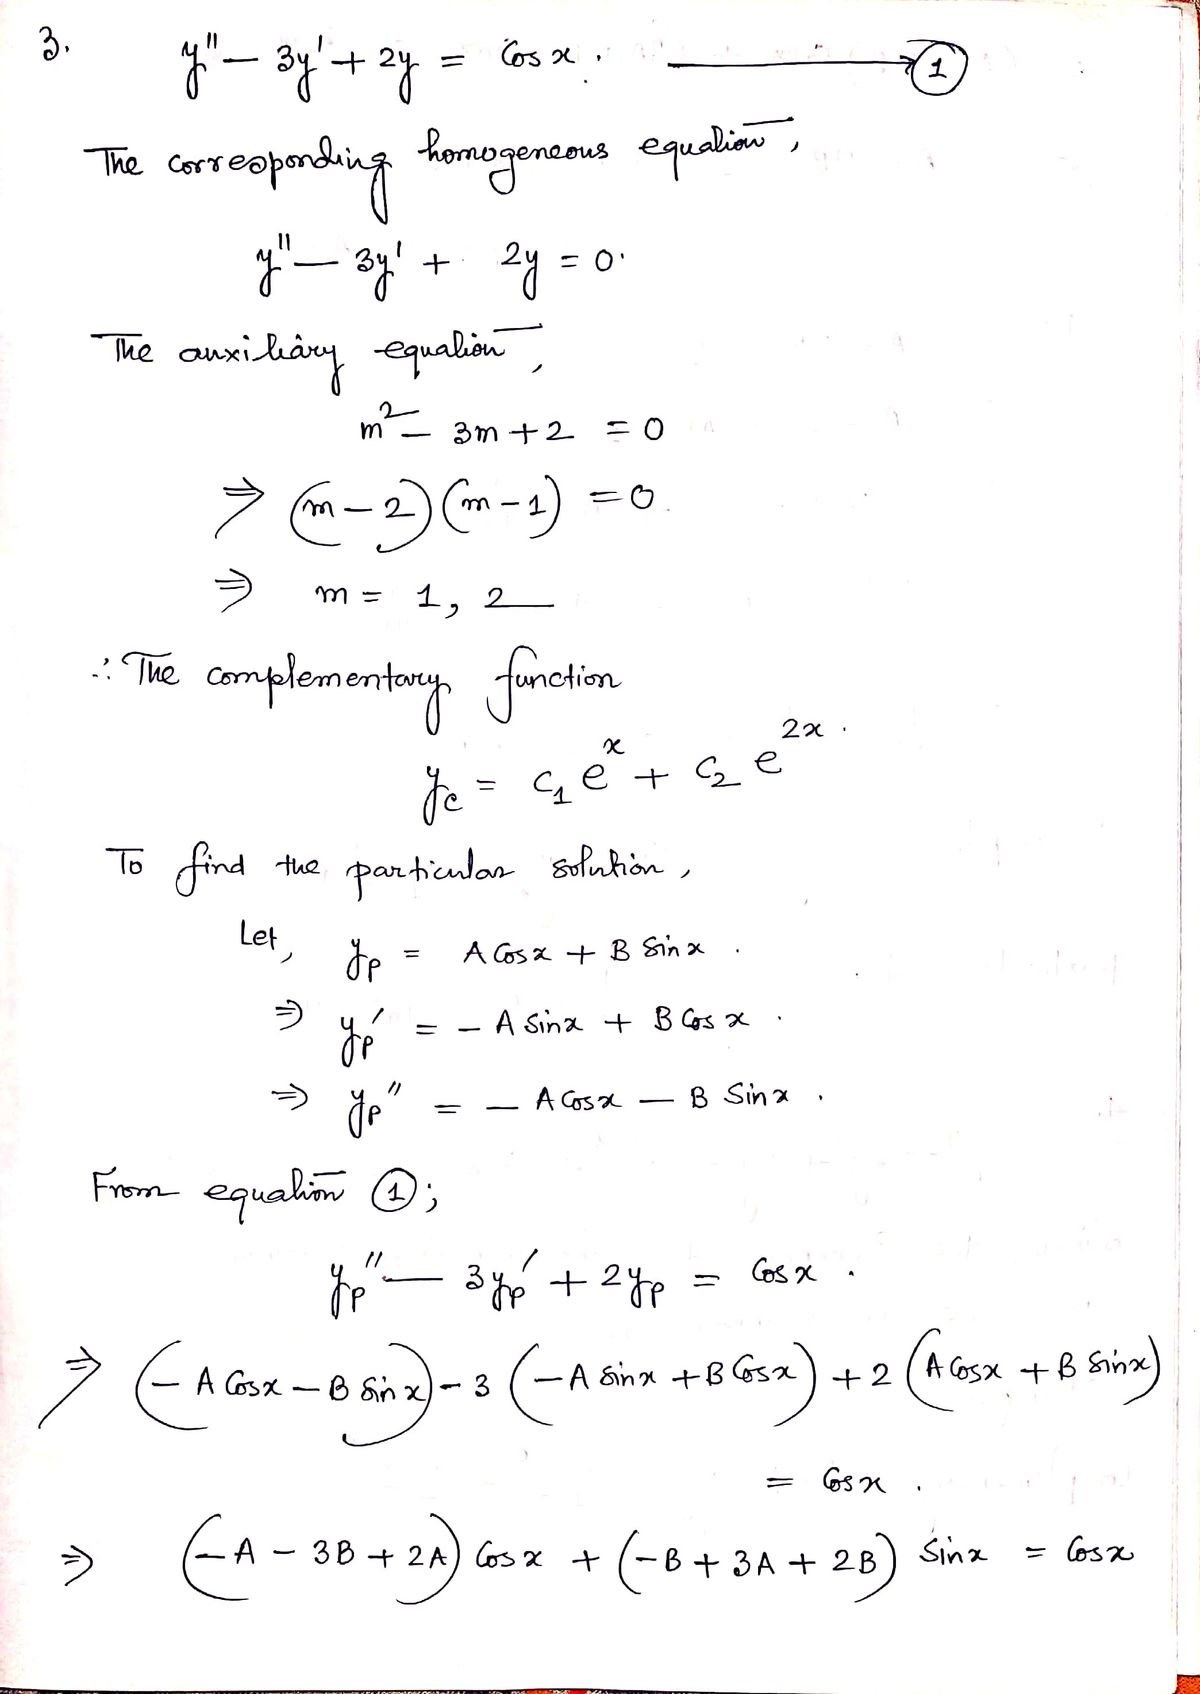 3. y'' - 3y' + 2y = Cos x. ⟶ ①
The corresponding homogeneous equation,
y'' - 3y' + 2y = 0.
The auxiliary equation,
m² - 3m + 2 = 0
⇒ (m - 2)(m - 1) = 0
⇒ m = 1, 2
∴ The complementary function
y_c = c₁ e^x + c₂ e^{2x}.
To find the particular solution,
Let, y_p = A Cos x + B Sin x.
⇒ y_p' = - A Sin x + B Cos x.
⇒ y_p'' = - A Cos x - B Sin x.
From equation ①;
y_p'' - 3y_p' + 2y_p = Cos x.
⇒ (- A Cos x - B Sin x) - 3 (- A Sin x + B Cos x) + 2 (A Cos x + B Sin x)
= Cos x.
⇒ (- A - 3B + 2A) Cos x + (- B + 3A + 2B) Sin x = Cos x